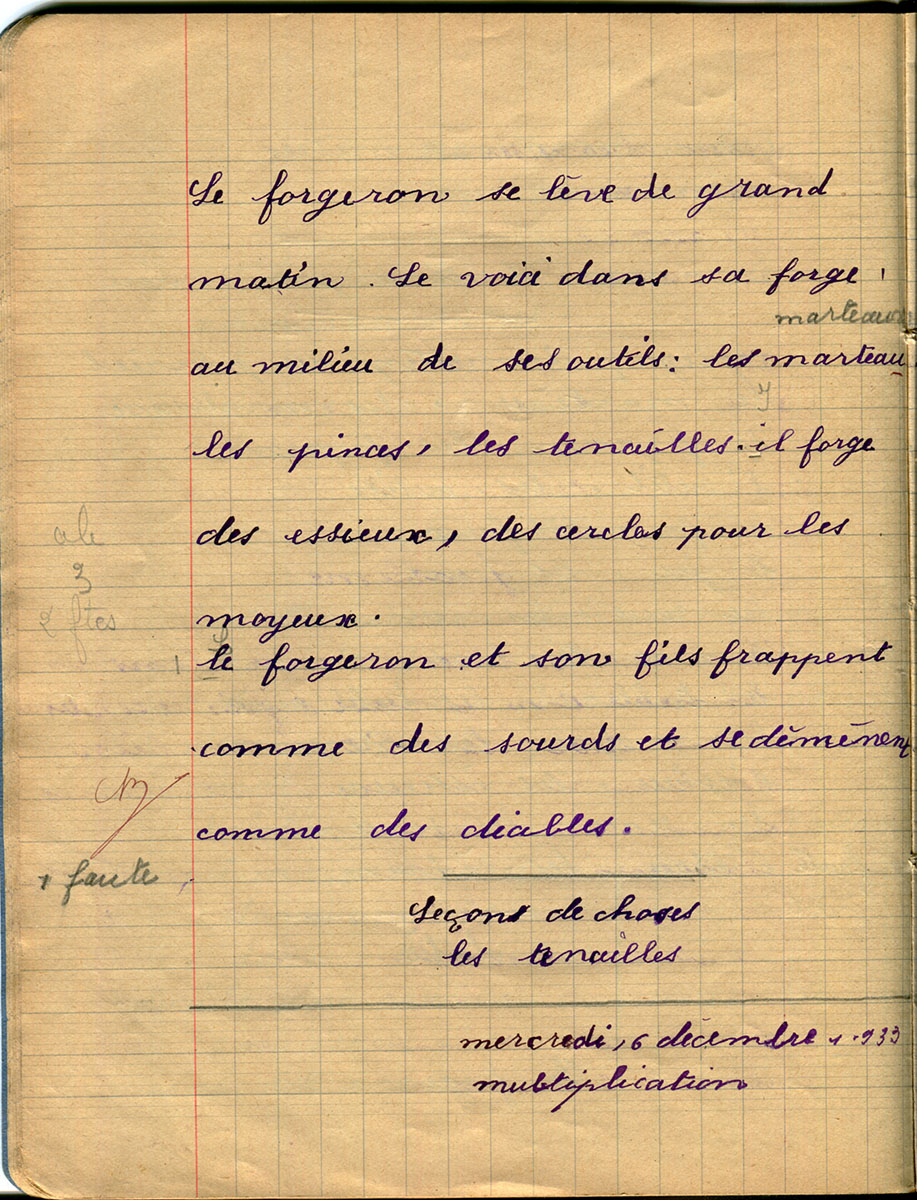 Le forgeron se lève de grand
matin. Le voici dans sa forge,
marteaux
au milieu de ses outils: les marteau
les pinces, les tenailles. il forge
I
des essieux, des cercles pour les
moyeux.
L
le forgeron et son fils frappent
comme des sourds et se démènent
comme des diables.
1 faute
Leçons de choses
les tenailles
mercredi, 6 décembre 1933
multiplication